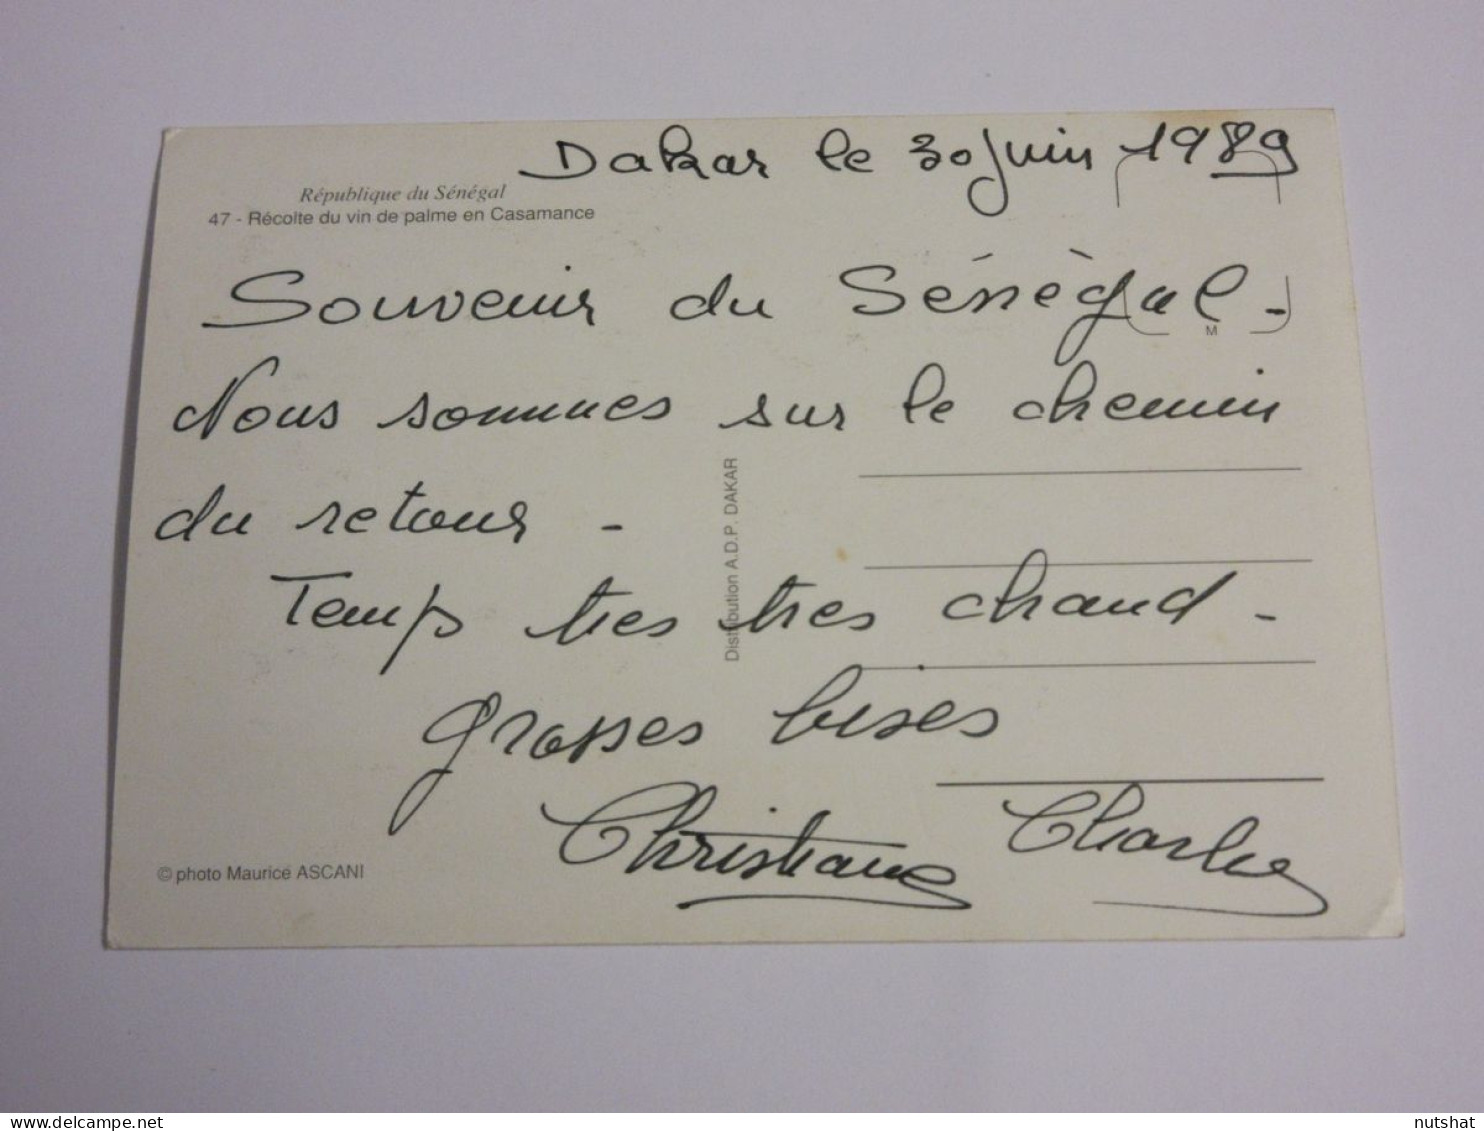 Dakar le 30 juin 1989
République du Sénégal
47 - Récolte du vin de palme en Casamance
Souvenir du Sénégal -
M
Nous sommes sur le chemin
du retour -
Distribution A.D.P. DAKAR
Temps tres tres chaud -
grosses bises
Christiane Charley
© photo Maurice ASCANI
delcampe.net
nutshat